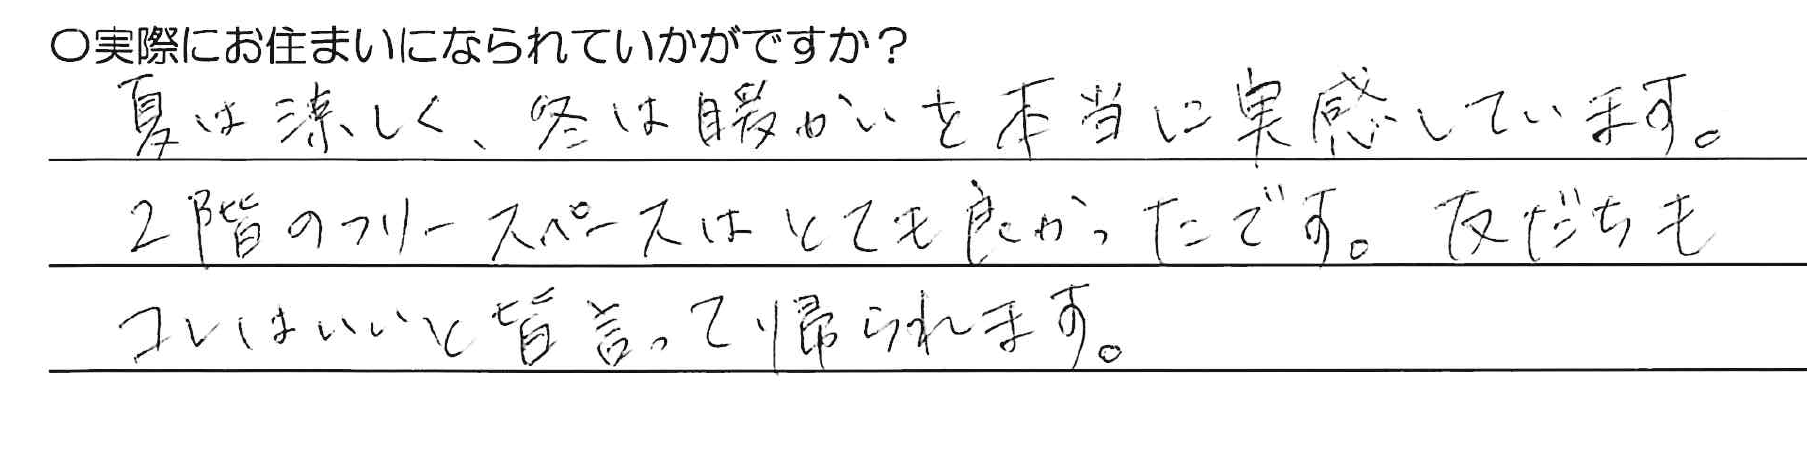 ○実際にお住まいになられていかがですか？
夏は涼しく、冬は暖かいを本当に実感しています。
2階のフリースペースはとても良かったです。友だちも
コレはいいと皆言って帰られます。